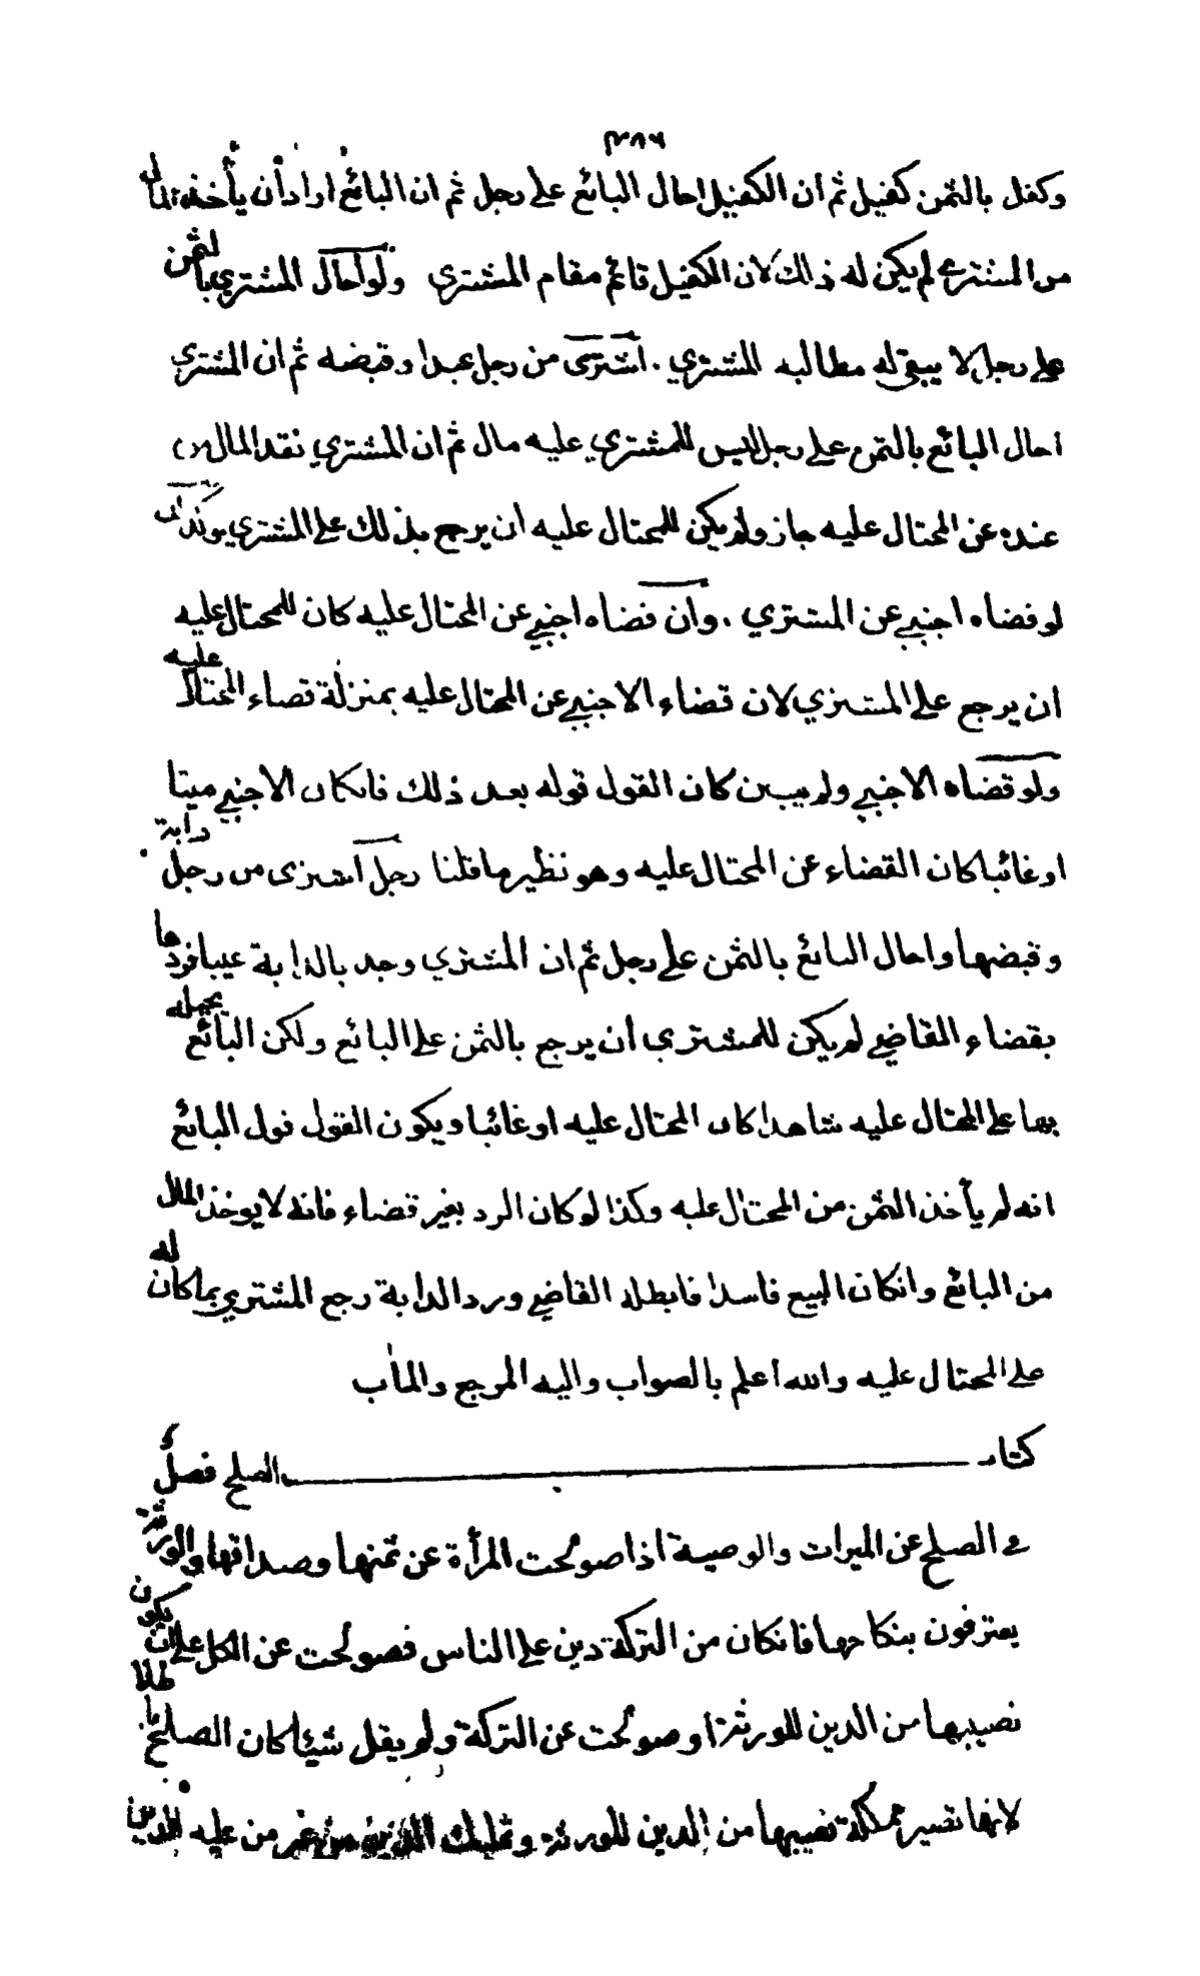 ٣٨٦
وكفل بالثمن كفيل ثم ان الكفيل احال البائع على رجل ثم ان البائع اراد أن يأخذ المال
من المشتري لم يكن له ذالك لان الكفيل قائم مقام المشتري ولو احال المشتري بالثمن
على رجل لا يبقى له مطالبه المشتري . اشترى من رجل عبدا وقبضه ثم ان المشتري
احال البائع بالثمن على رجل ليس للمشتري عليه مال ثم ان المشتري نقد المال
عنده عن المحتال عليه جاز ولم يكن للمحتال عليه ان يرجع بذلك على المشتري
لو قضاه اجنبي عن المشتري . وان قضاه اجنبي عن المحتال عليه كان للمحتال عليه
ان يرجع على المشتري لان قضاء الاجنبي عن المحتال عليه بمنزلة قضاء المحتال عليه
ولو قضاه الاجنبي ولم يبين كان القول قوله بعد ذلك فانكان الاجنبي ميتا
او غائبا كان القضاء عن المحتال عليه وهو نظير ما قلنا رجل اشترى من رجل دابة
وقبضها واحال البائع بالثمن على رجل ثم ان المشتري وجد بالدابة عيبا فردها
بقضاء القاضي لم يكن للمشتري ان يرجع بالثمن على البائع ولكن البائع يحيله
بها على المحتال عليه شاهدا كان المحتال عليه او غائبا ويكون القول قول البائع
انه لم يأخذ الثمن من المحتال عليه وكذا لو كان الرد بغير قضاء فانه لا يوخذ المال
من البائع وانكان البيع فاسدا فابطله القاضي ورد الدابة رجع المشتري بما كان له
على المحتال عليه والله اعلم بالصواب واليه المرجع والمآب
كتاب الصلح فصل
في الصلح عن الميراث والوصية اذا صولحت المرأة عن ثمنها وصداقها والورثة
يعترفون بنكاحها فانكان من التركة دين على الناس فصولحت عن الكل على ان يكون
نصيبها من الدين للورثة أو صولحت عن التركة ولم يقل شيئا كان الصلح باطلا
لانها تصير مملكة نصيبها من الدين للورثة وتمليك الدين من غير من عليه الدين